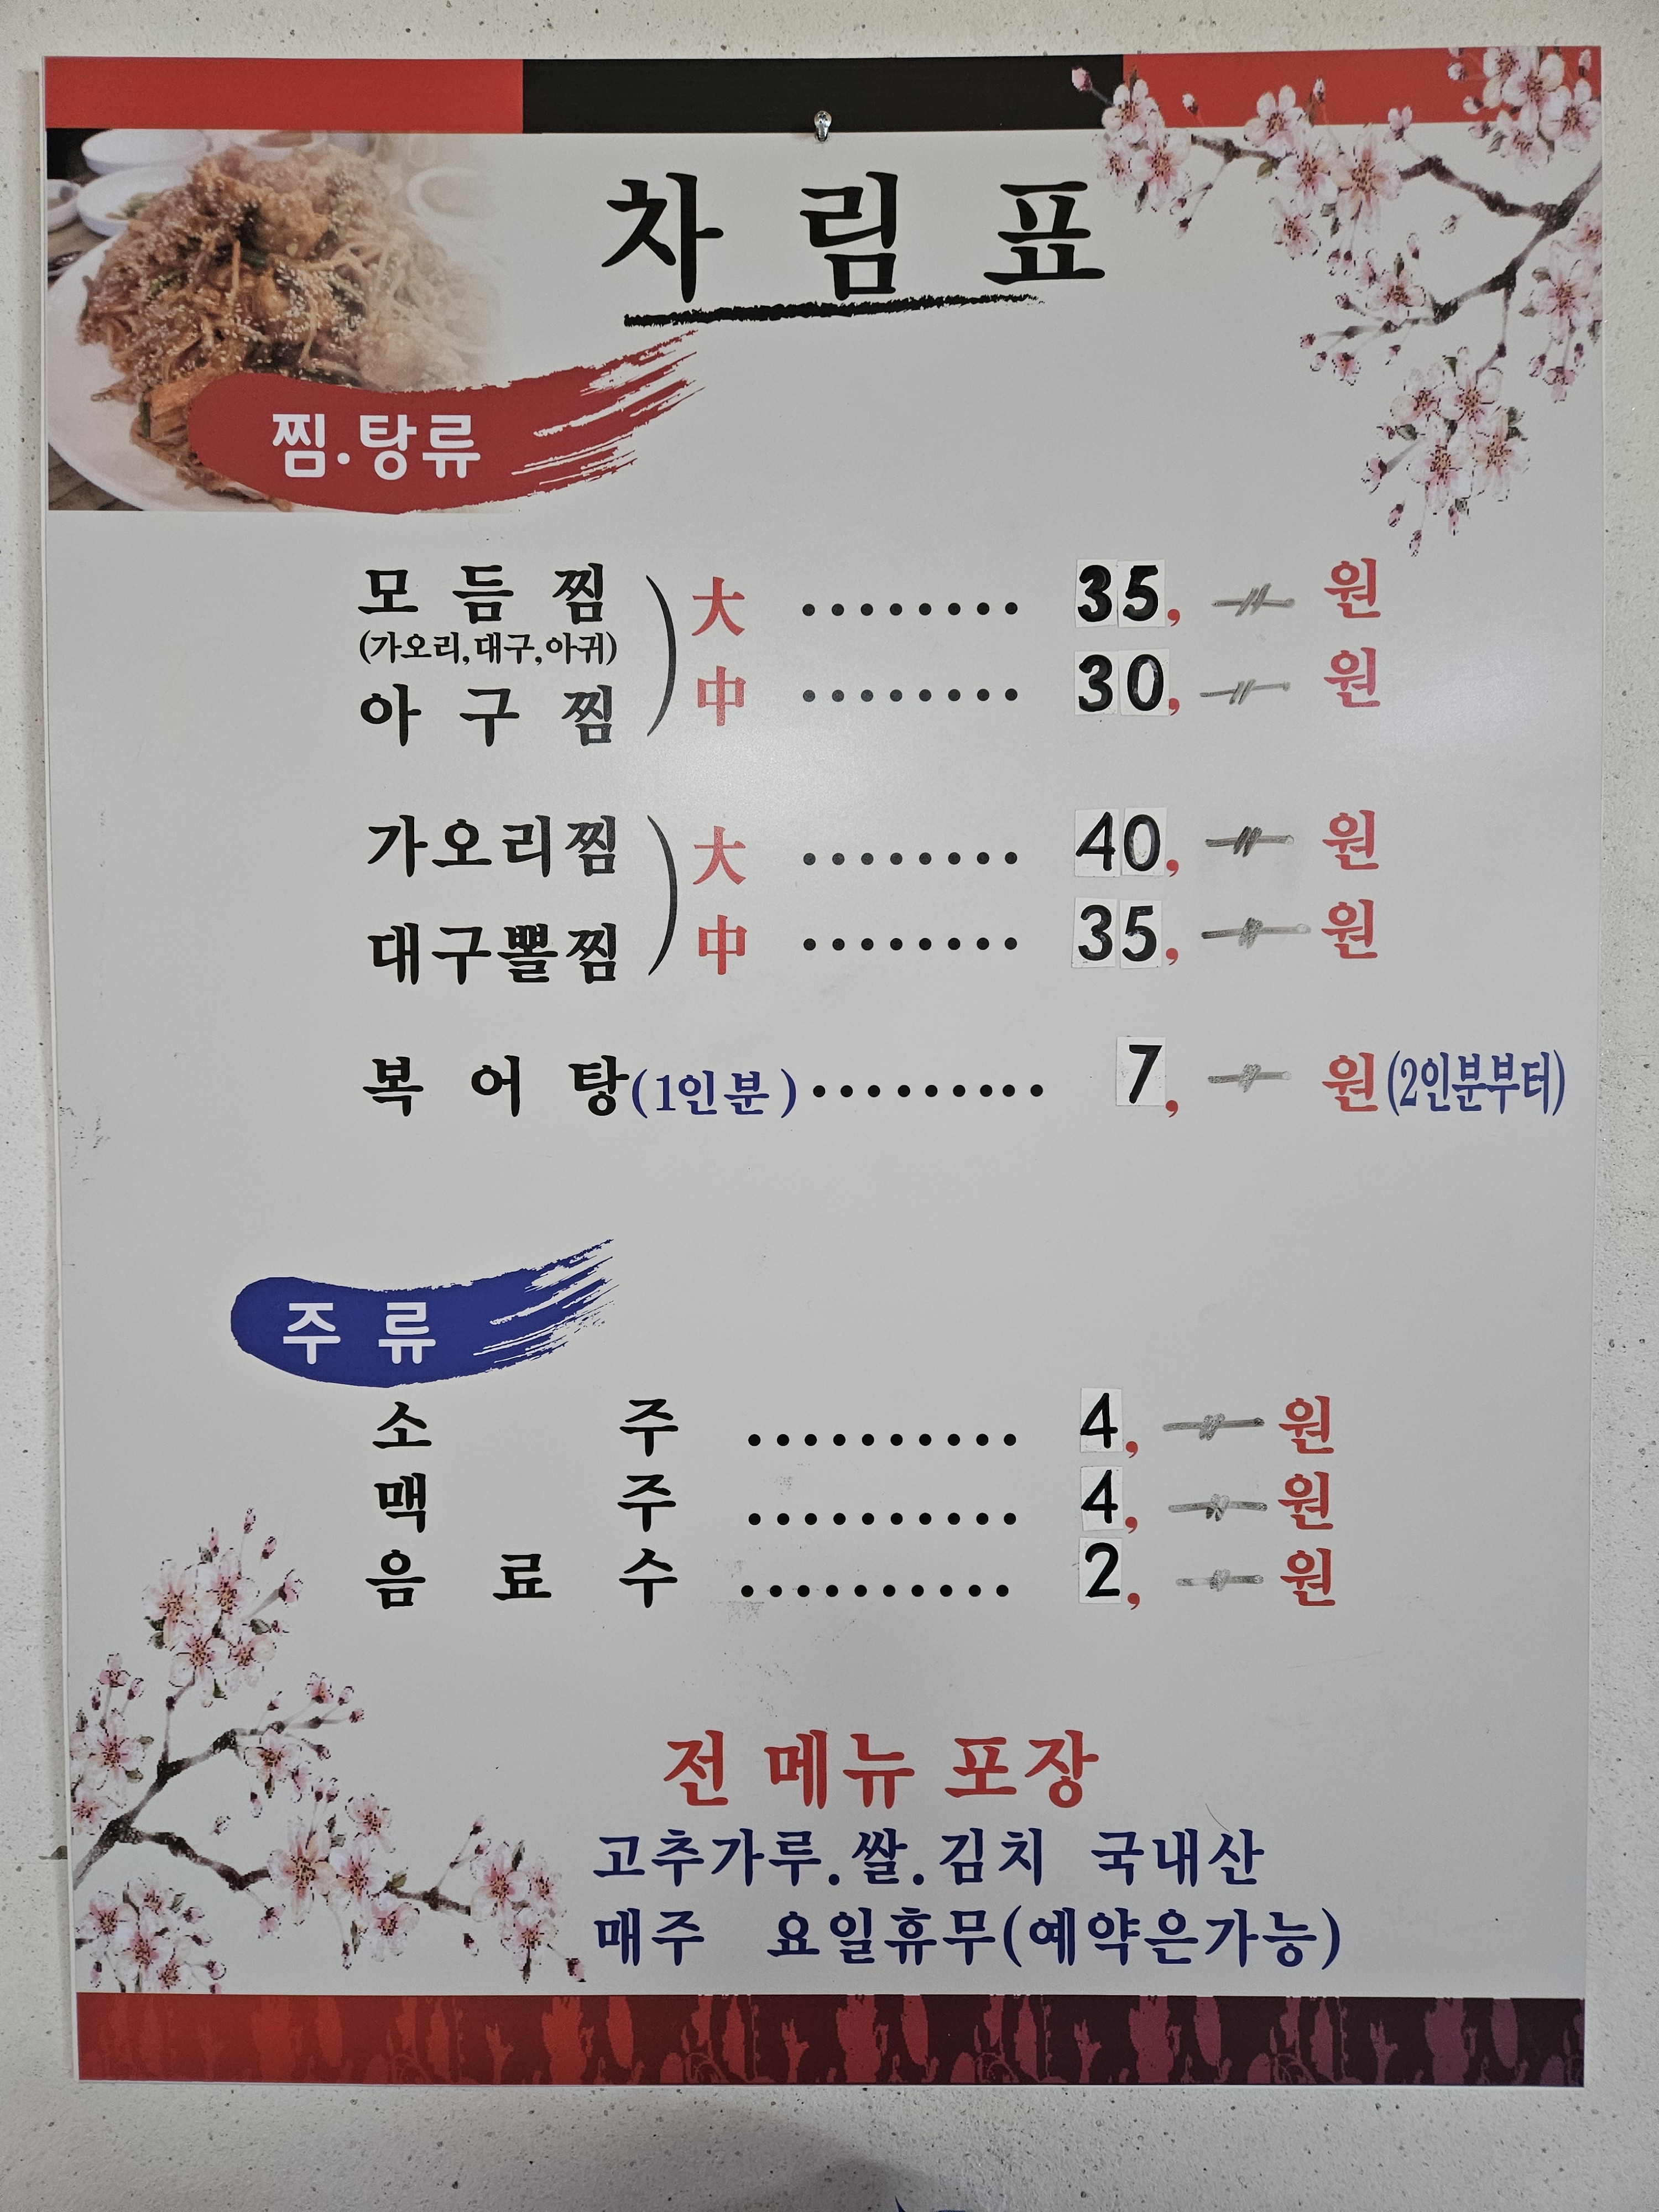 차림표
찜.탕류
모듬찜 大 ........ 35, 원
(가오리,대구,아귀)
아구찜 中 ........ 30, 원
가오리찜 大 ........ 40, 원
대구뽈찜 中 ........ 35, 원
복어탕(1인분) ......... 7, 원(2인분부터)
주류
소주 .......... 4, 원
맥주 .......... 4, 원
음료수 .......... 2, 원
전 메뉴 포장
고추가루.쌀.김치 국내산
매주 요일휴무(예약은가능)